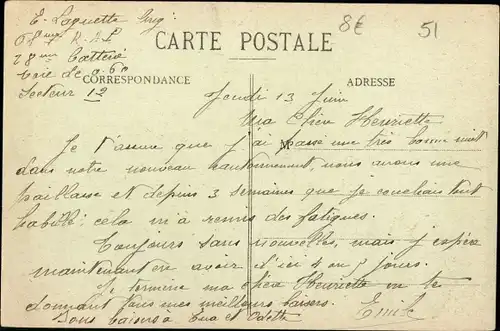 E. Laquette Brig
68eme R.A.P
28eme Batterie
Secteur 12
8€
51
CARTE POSTALE
CORRESPONDANCE
ADRESSE
Jeudi 13 Juin
Ma Chère Henriette
Je t'assure que j'ai passé une très bonne nuit
dans notre nouveau cantonnement, nous avons une
paillasse et depuis 3 semaines que je couchais tout
habillé; cela m'a remis des fatigues.
Toujours sans nouvelles, mais j'espère
maintenant en avoir d'ici 4 ou 5 jours.
Je termine ma chère Henriette en te
donnant tous mes meilleurs baisers.
Emile
Bons baisers à Eva et Odette